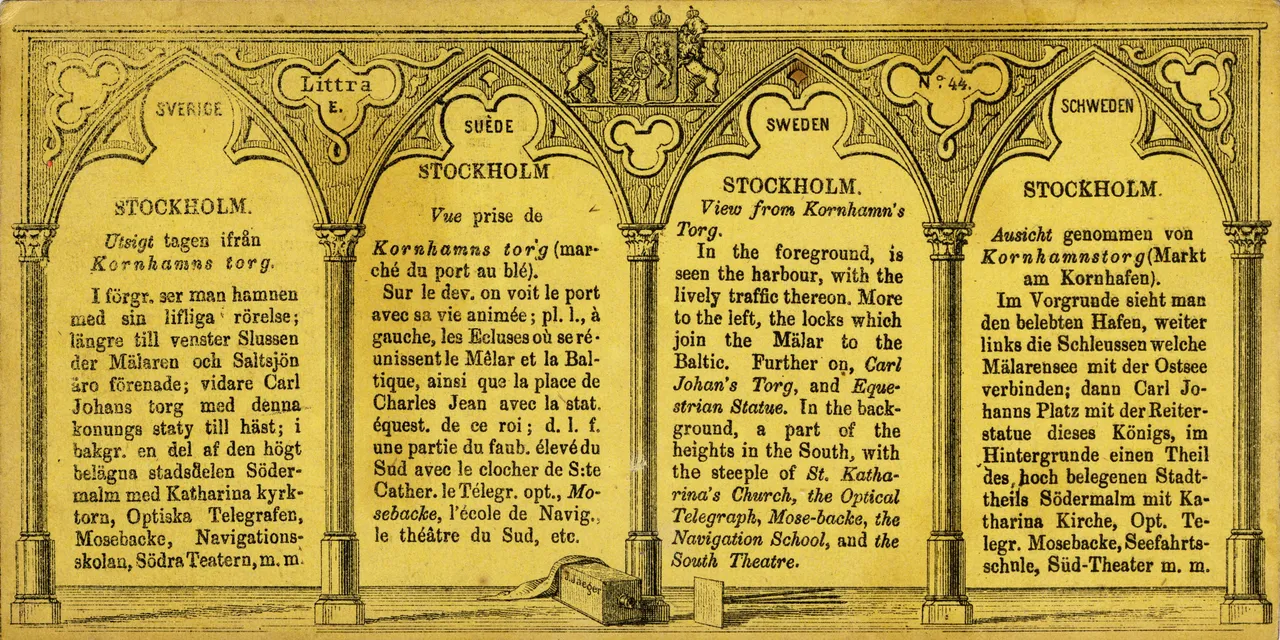 Littra
E.
No. 44.
SVERIGE
STOCKHOLM.
Utsigt tagen ifrån
Kornhamns torg.
I förgr. ser man hamnen
med sin lifliga rörelse;
längre till venster Slussen
der Mälaren och Saltsjön
äro förenade; vidare Carl
Johans torg med denna
konungs staty till häst; i
bakgr. en del af den högt
belägna stadsdelen Söder-
malm med Katharina kyrk-
torn, Optiska Telegrafen,
Mosebacke, Navigations-
skolan, Södra Teatern, m. m.
SUÈDE
STOCKHOLM
Vue prise de
Kornhamns torg (mar-
ché du port au blé).
Sur le dev. on voit le port
avec sa vie animée; pl. l., à
gauche, les Ecluses où se ré-
unissent le Mêlar et la Bal-
tique, ainsi que la place de
Charles Jean avec la stat.
équest. de ce roi; d. l. f.
une partie du faub. élevé du
Sud avec le clocher de S:te
Cather. le Télegr. opt., Mo-
sebacke, l'école de Navig.,
le théâtre du Sud, etc.
SWEDEN
STOCKHOLM.
View from Kornhamn's
Torg.
In the foreground, is
seen the harbour, with the
lively traffic thereon. More
to the left, the locks which
join the Mälar to the
Baltic. Further on, Carl
Johan's Torg, and Eque-
strian Statue. In the back-
ground, a part of the
heights in the South, with
the steeple of St. Katha-
rina's Church, the Optical
Telegraph, Mose-backe, the
Navigation School, and the
South Theatre.
SCHWEDEN
STOCKHOLM.
Ausicht genommen von
Kornhamnstorg (Markt
am Kornhafen).
Im Vorgrunde sieht man
den belebten Hafen, weiter
links die Schleussen welche
Mälarensee mit der Ostsee
verbinden; dann Carl Jo-
hanns Platz mit der Reiter-
statue dieses Königs, im
Hintergrunde einen Theil
des hoch belegenen Stadt-
theils Södermalm mit Ka-
tharina Kirche, Opt. Te-
legr. Mosebacke, Seefahrts-
schule, Süd-Theater m. m.
J. Jaeger